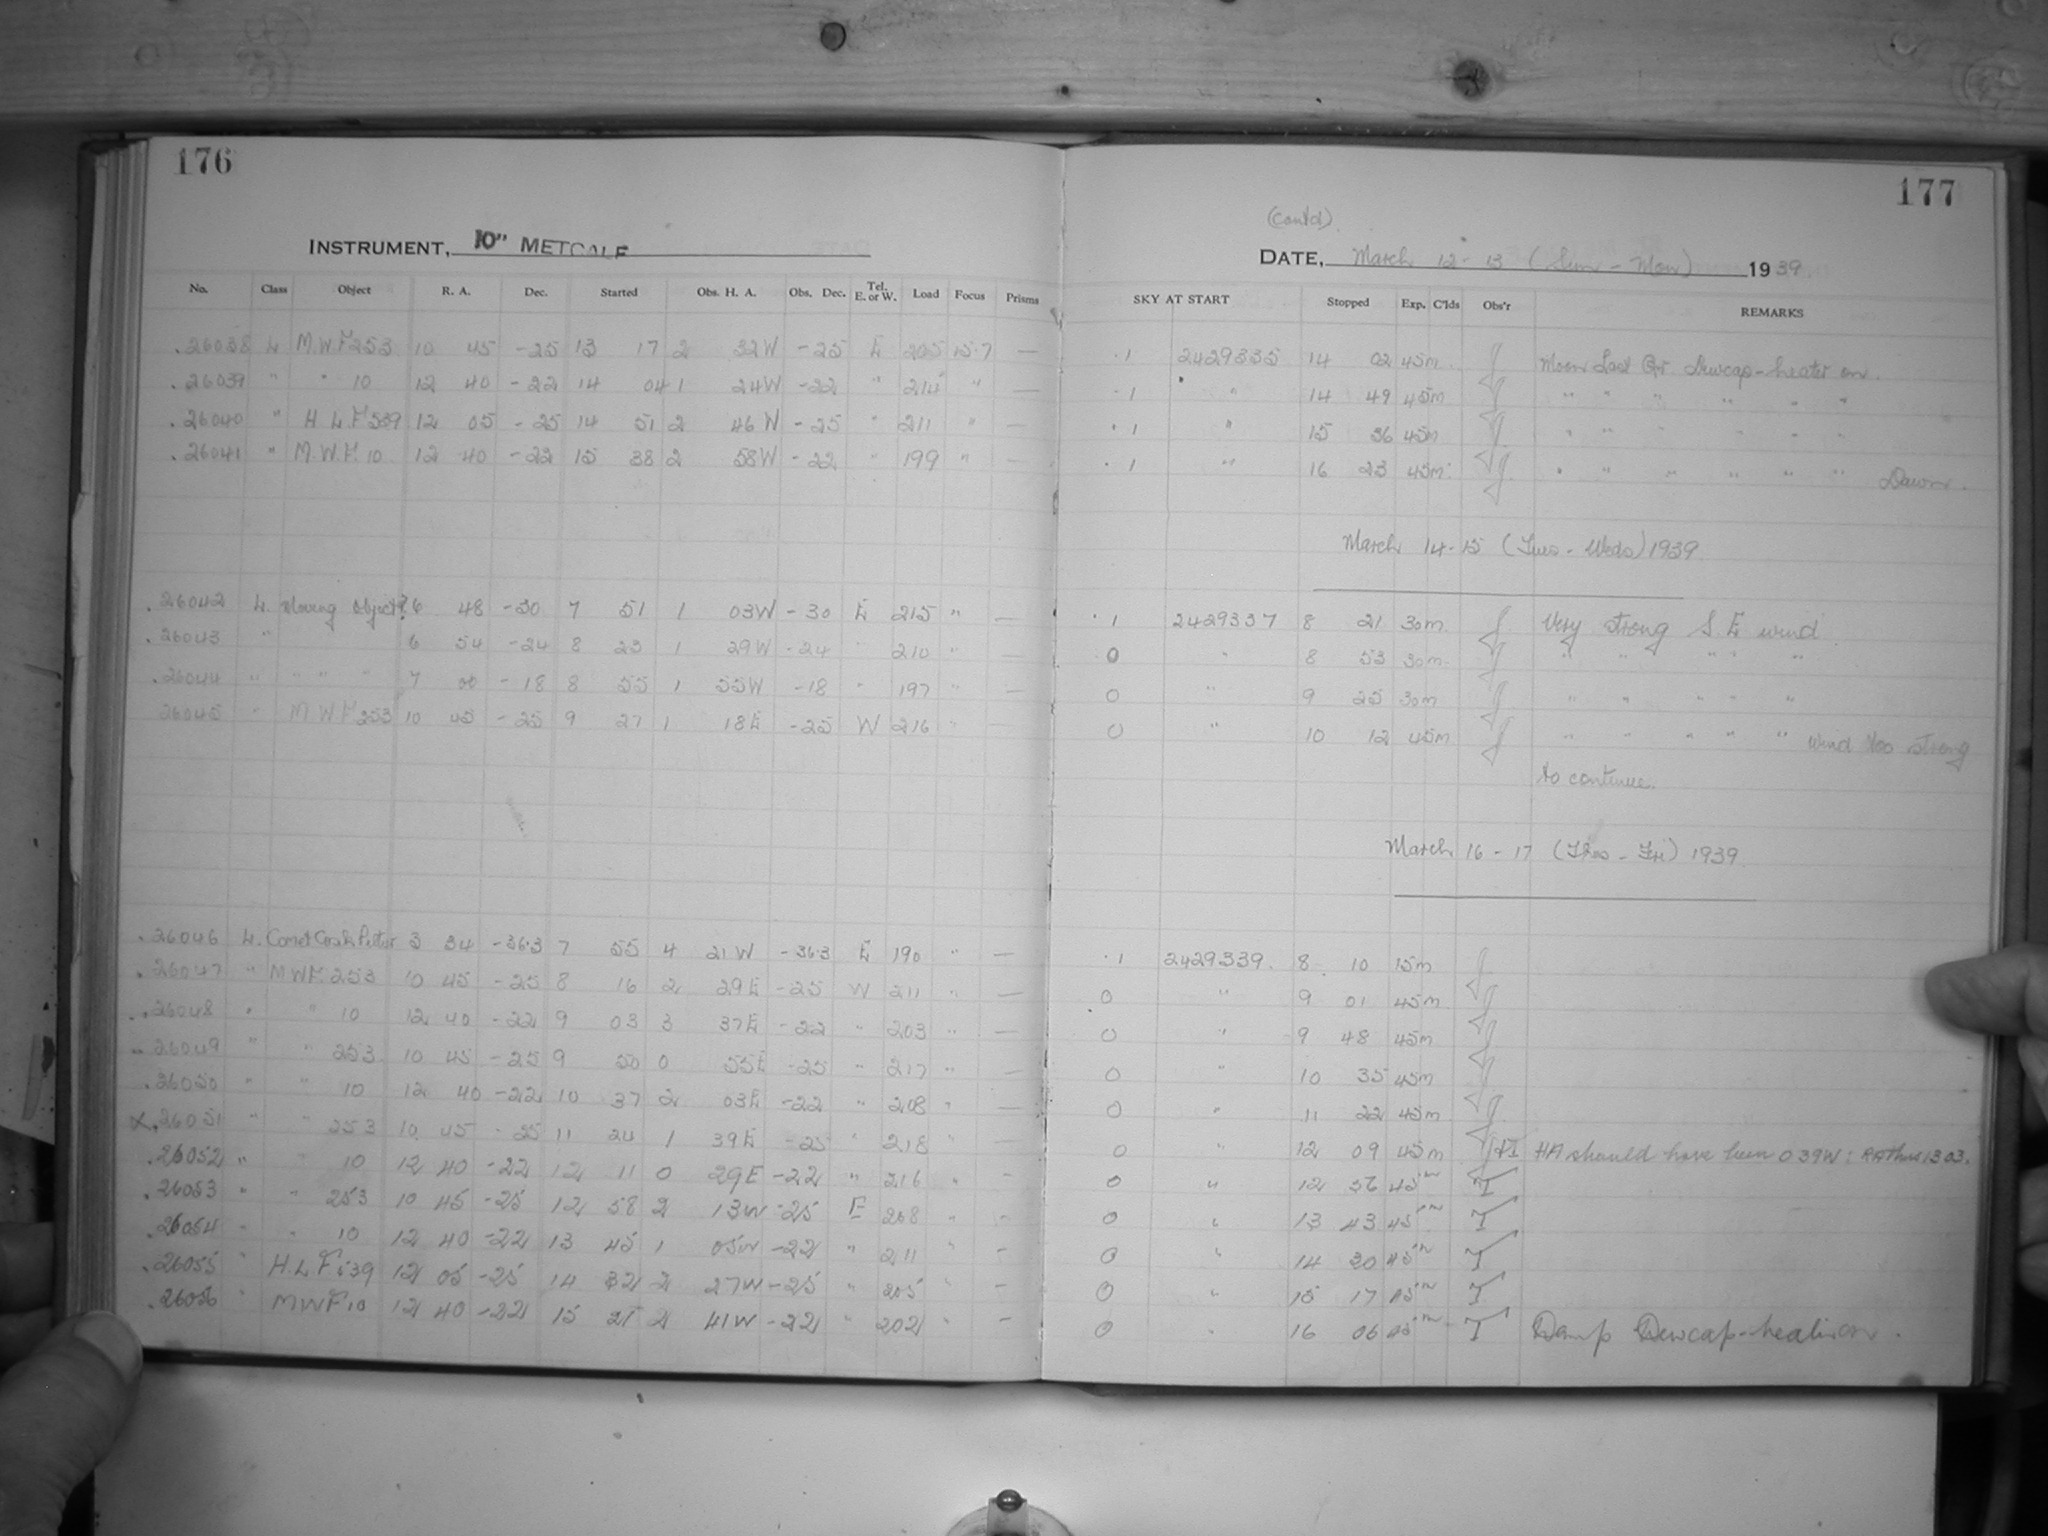 176
INSTRUMENT, 10" METCALF
No. Class Object R. A. Dec. Started Obs. H. A. Obs. Dec. Tel. E. or W. Load Focus Prisms
.26038 L M.W.F 253 10 45 -25 13 17 2 32W -25 E 205 15.7 —
.26039 " " 10 12 40 -22 14 04 1 24W -22 " 214 " —
.26040 " H L F 539 12 05 -25 14 51 2 46W -25 " 211 " —
.26041 " M.W.F. 10 12 40 -22 15 38 2 58W -22 " 199 " —
.26042 L. Moving Object? 6 48 -30 7 51 1 03W -30 E 215 " —
.26043 " 6 54 -24 8 23 1 29W -24 " 210 " —
.26044 " " " " 7 00 -18 8 55 1 55W -18 " 197 " —
26045 " M W F 253 10 45 -25 9 27 1 18E -25 W 216 " —
.26046 L. Comet 3 34 -36.3 7 55 4 21W -36.3 E 190 " —
.26047 " M W F. 253 10 45 -25 8 16 2 29E -25 W 211 " —
.26048 " " 10 12 40 -22 9 03 3 37E -22 " 203 " —
26049 " " 253 10 45 -25 9 50 0 55E -25 " 217 " —
.26050 " " 10 12 40 -22 10 37 2 03E -22 " 208 " —
x.26051 " " 253 10 45 -25 11 24 1 39E -25 " 218 " —
.26052 " " 10 12 40 -22 12 11 0 29E -22 " 216 " -
.26053 " " 253 10 45 -25 12 58 2 13W -25 E 208 " -
.26054 " " 10 12 40 -22 13 45 1 05W -22 " 211 " -
.26055 " H.L F 539 12 05 -25 14 32 2 27W -25 " 205 " -
.26056 " M W F 10 12 40 -22 15 21 2 41W -22 " 202 " -
177
(contd).
DATE, March 12-13 (Sun - Mon) 1939.
SKY AT START Stopped Exp. C'lds Obs'r REMARKS
.1 2429335 14 02 45m. J Moon Last Qr. Dewcap-heater on.
.1 " 14 49 45m J " " " " " "
.1 " 15 36 45m J " " " " " "
.1 " 16 23 45m. J " " " " " " Dawn.
March 14-15 (Tues - Weds) 1939
.1 2429337 8 21 30m. J Very strong S E wind.
0 " 8 53 30m. J " " " " "
0 " 9 25 30m J " " " " "
0 " 10 12 45m J " " " " " Wind too strong
to continue.
March 16 - 17 (Thos - Fri) 1939
.1 2429339. 8 10 15m J
0 " 9 01 45m J
0 " 9 48 45m J
0 " 10 35 45m J
0 " 11 22 45m J
0 " 12 09 45m HA should have been 0 39W: RA thus 13 03.
0 " 12 56 45m T
0 " 13 43 45m T
0 " 14 30 45m T
0 " 15 17 45m T
0 " 16 06 45m T Damp Dewcap-heater on.